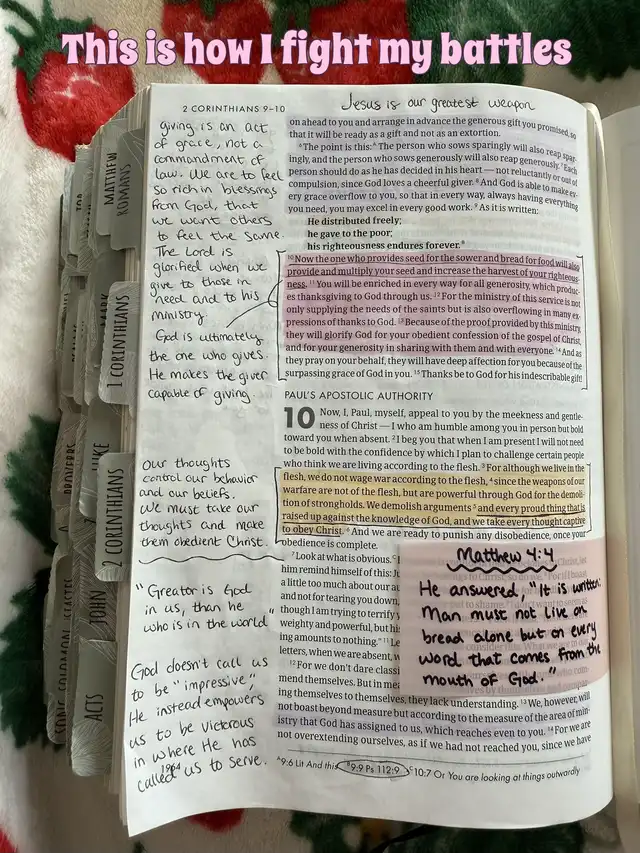 This is how I fight my battles
2 CORINTHIANS 9–10
Jesus is our greatest weapon
giving is an act
of grace, not a
commandment of
law. We are to feel
so rich in blessings
from God, that
we want others
to feel the same.
The Lord is
glorified when we
give to those in
need and to his
ministry.
God is ultimately
the one who gives.
He makes the giver
capable of giving.
Our thoughts
control our behavior
and our beliefs.
We must take our
thoughts and make
them obedient Christ.
"Greater is God
in us, than he
who is in the world"
God doesn't call us
to be "impressive",
He instead empowers
us to be victorious
in where He has
called us to serve.
1964
on ahead to you and arrange in advance the generous gift you promised, so
that it will be ready as a gift and not as an extortion.
6 The point is this:A The person who sows sparingly will also reap spar-
ingly, and the person who sows generously will also reap generously. 7 Each
person should do as he has decided in his heart — not reluctantly or out of
compulsion, since God loves a cheerful giver. 8 And God is able to make ev-
ery grace overflow to you, so that in every way, always having everything
you need, you may excel in every good work. 9 As it is written:
He distributed freely;
he gave to the poor;
his righteousness endures forever.B
10 Now the one who provides seed for the sower and bread for food will also
provide and multiply your seed and increase the harvest of your righteous-
ness. 11 You will be enriched in every way for all generosity, which produc-
es thanksgiving to God through us. 12 For the ministry of this service is not
only supplying the needs of the saints but is also overflowing in many ex-
pressions of thanks to God. 13 Because of the proof provided by this ministry,
they will glorify God for your obedient confession of the gospel of Christ,
and for your generosity in sharing with them and with everyone. 14 And as
they pray on your behalf, they will have deep affection for you because of the
surpassing grace of God in you. 15 Thanks be to God for his indescribable gift!
PAUL'S APOSTOLIC AUTHORITY
10 Now, I, Paul, myself, appeal to you by the meekness and gentle-
ness of Christ — I who am humble among you in person but bold
toward you when absent. 2 I beg you that when I am present I will not need
to be bold with the confidence by which I plan to challenge certain people
who think we are living according to the flesh. 3 For although we live in the
flesh, we do not wage war according to the flesh, 4 since the weapons of our
warfare are not of the flesh, but are powerful through God for the demoli-
tion of strongholds. We demolish arguments 5 and every proud thing that is
raised up against the knowledge of God, and we take every thought captive
to obey Christ. 6 And we are ready to punish any disobedience, once your
obedience is complete.
7 Look at what is obvious.C
him remind himself of this: J
a little too much about our au
and not for tearing you down,
though I am trying to terrify y
weighty and powerful, but his
ing amounts to nothing." 11 Le
letters, when we are absent, w
12 For we don't dare classi
mend themselves. But in mea
ing themselves to themselves, they lack understanding. 13 We, however, will
not boast beyond measure but according to the measure of the area of min-
istry that God has assigned to us, which reaches even to you. 14 For we are
not overextending ourselves, as if we had not reached you, since we have
A 9:6 Lit And this B 9:9 Ps 112:9 C 10:7 Or You are looking at things outwardly
Matthew 4:4
He answered, "It is written:
Man must not live on
bread alone but on every
word that comes from the
mouth of God."
MATTHEW
ROMANS
JOB
MARK
1 CORINTHIANS
PROVERBS
LUKE
2 CORINTHIANS
JOHN
SONG SOLOMON
ACTS